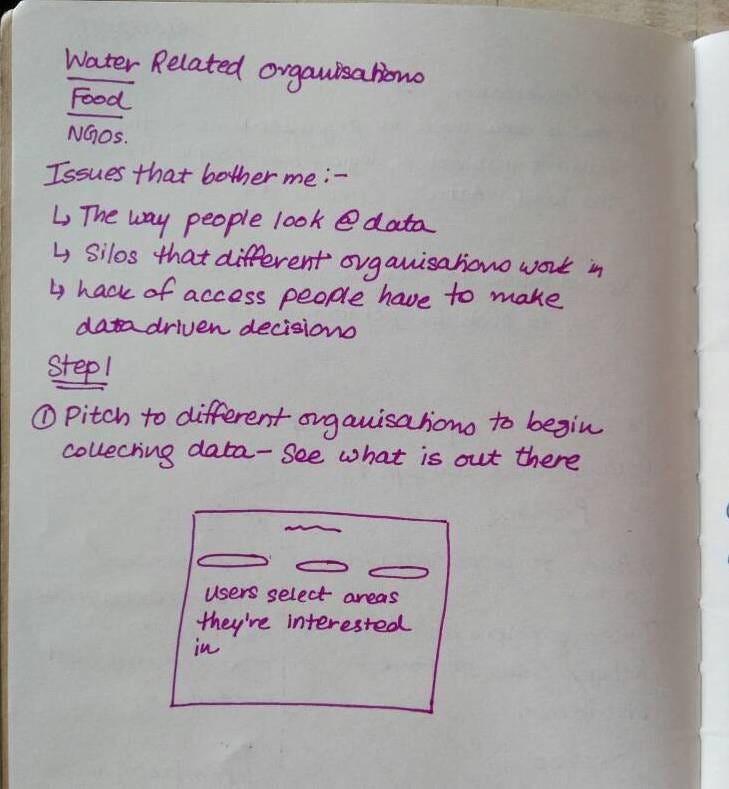 Water Related organisations
Food
NGOs.
Issues that bother me :-
↳ The way people look @ data
↳ Silos that different organisations work in
↳ Lack of access people have to make
data driven decisions
Step 1
① Pitch to different organisations to begin
collecting data - See what is out there
Users select areas
they're interested
in